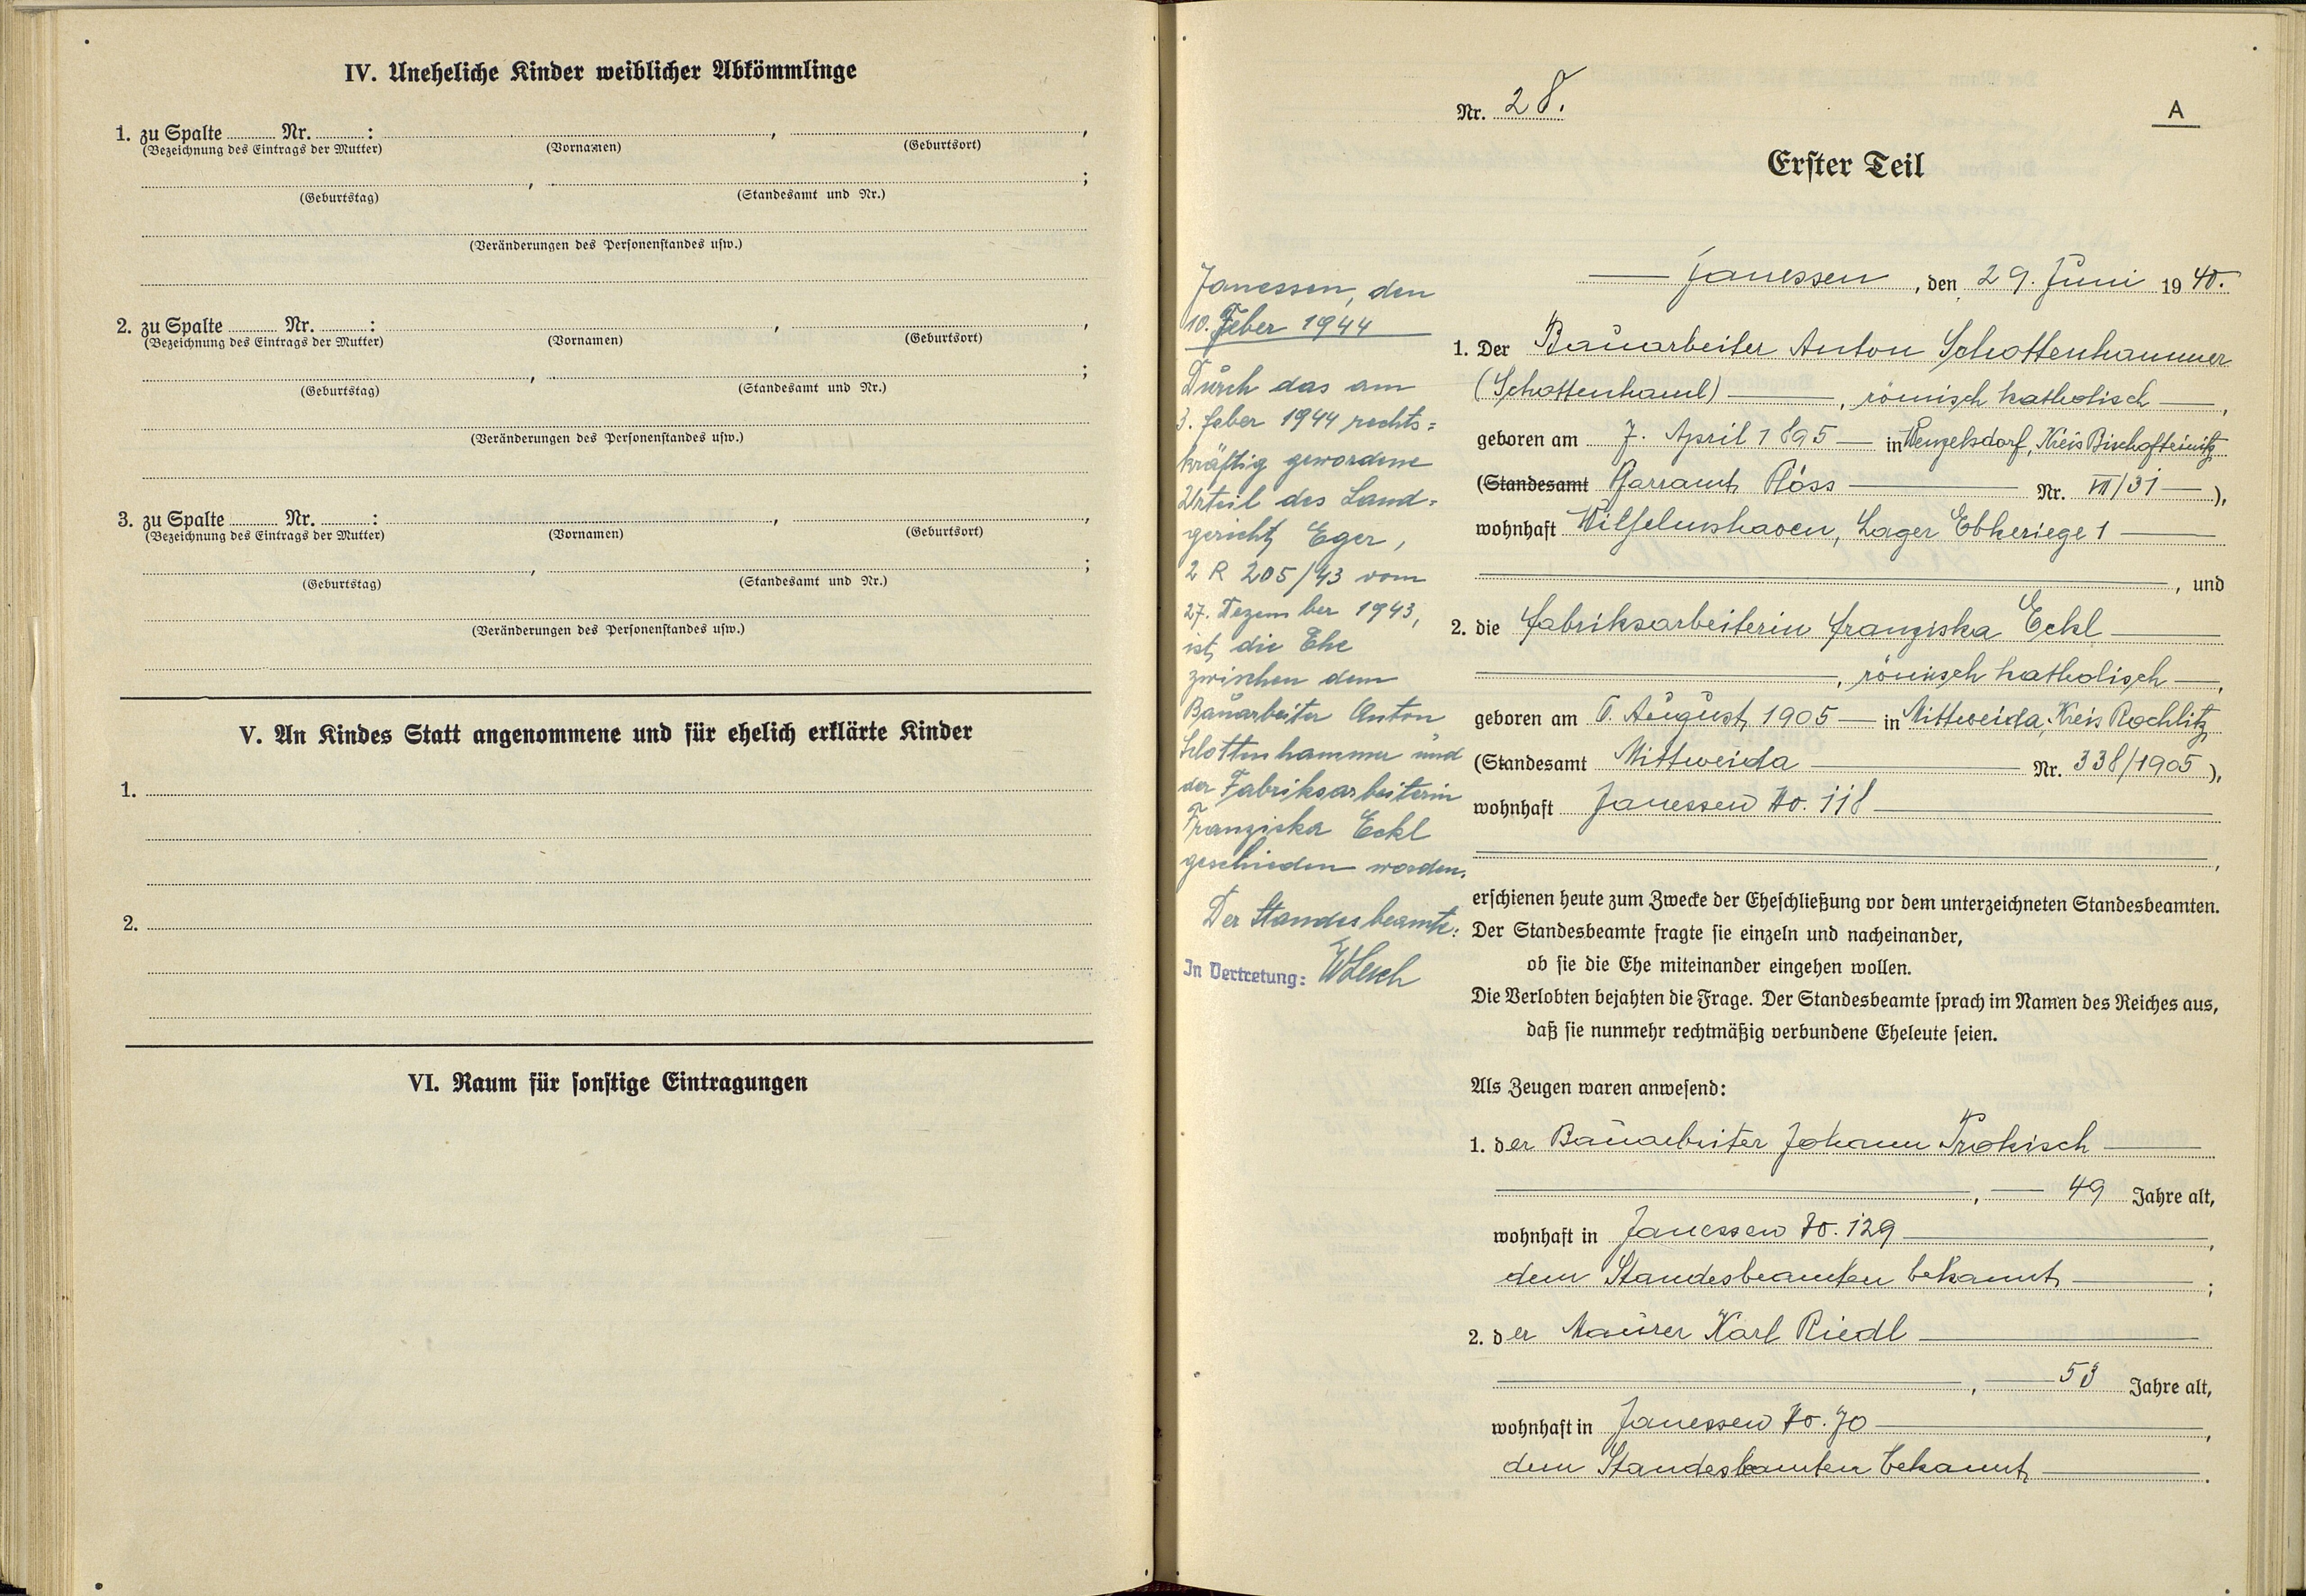 IV. Uneheliche Kinder weiblicher Abkömmlinge
1. zu Spalte Nr. : , ,
(Bezeichnung des Eintrags der Mutter) (Vornamen) (Geburtsort)
, ;
(Geburtstag) (Standesamt und Nr.)
(Veränderungen des Personenstandes usw.)
2. zu Spalte Nr. : , ,
(Bezeichnung des Eintrags der Mutter) (Vornamen) (Geburtsort)
, ;
(Geburtstag) (Standesamt und Nr.)
(Veränderungen des Personenstandes usw.)
3. zu Spalte Nr. : , ,
(Bezeichnung des Eintrags der Mutter) (Vornamen) (Geburtsort)
, ;
(Geburtstag) (Standesamt und Nr.)
(Veränderungen des Personenstandes usw.)
V. An Kindes Statt angenommene und für ehelich erklärte Kinder
1.
2.
VI. Raum für sonstige Eintragungen
Nr. 28.
A
Erster Teil
Janessen, den
10. Feber 1944
Durch das am
3. Feber 1944 rechts=
kräftig gewordene
Urteil des Land=
gericht Eger,
2 R 205/43 vom
27. Dezember 1943,
ist die Ehe
zwischen dem
Bauarbeiter Anton
Schottenhammer und
der Fabriksarbeiterin
Franziska Eckl
geschieden worden.
Der Standesbeamte:
In Vertretung:
Janessen, den 29. Juni 1940.
1. Der Bauarbeiter Anton Schottenhammer
(Schottenhaml) , römisch katholisch ,
geboren am 7. April 1895 in Wenzelsdorf, Kreis Bischofteinitz
(Standesamt Pfarramt Plöss Nr. VII/31 ),
wohnhaft Wilhelmshaven, Lager Ebkeriege 1
, und
2. die Fabriksarbeiterin Franziska Eckl
, römisch katholisch ,
geboren am 6. August 1905 in Mittweida, Kreis Rochlitz
(Standesamt Mittweida Nr. 338/1905 ),
wohnhaft Janessen No. 118
,
erschienen heute zum Zwecke der Eheschließung vor dem unterzeichneten Standesbeamten.
Der Standesbeamte fragte sie einzeln und nacheinander,
ob sie die Ehe miteinander eingehen wollen.
Die Verlobten bejahten die Frage. Der Standesbeamte sprach im Namen des Reiches aus,
daß sie nunmehr rechtmäßig verbundene Eheleute seien.
Als Zeugen waren anwesend:
1. der Bauarbeiter Johann Prokisch
, 49 Jahre alt,
wohnhaft in Janessen No. 129 ,
dem Standesbeamten bekannt ;
2. der Maurer Karl Riedl
, 53 Jahre alt,
wohnhaft in Janessen No. 70 ,
dem Standesbeamten bekannt .